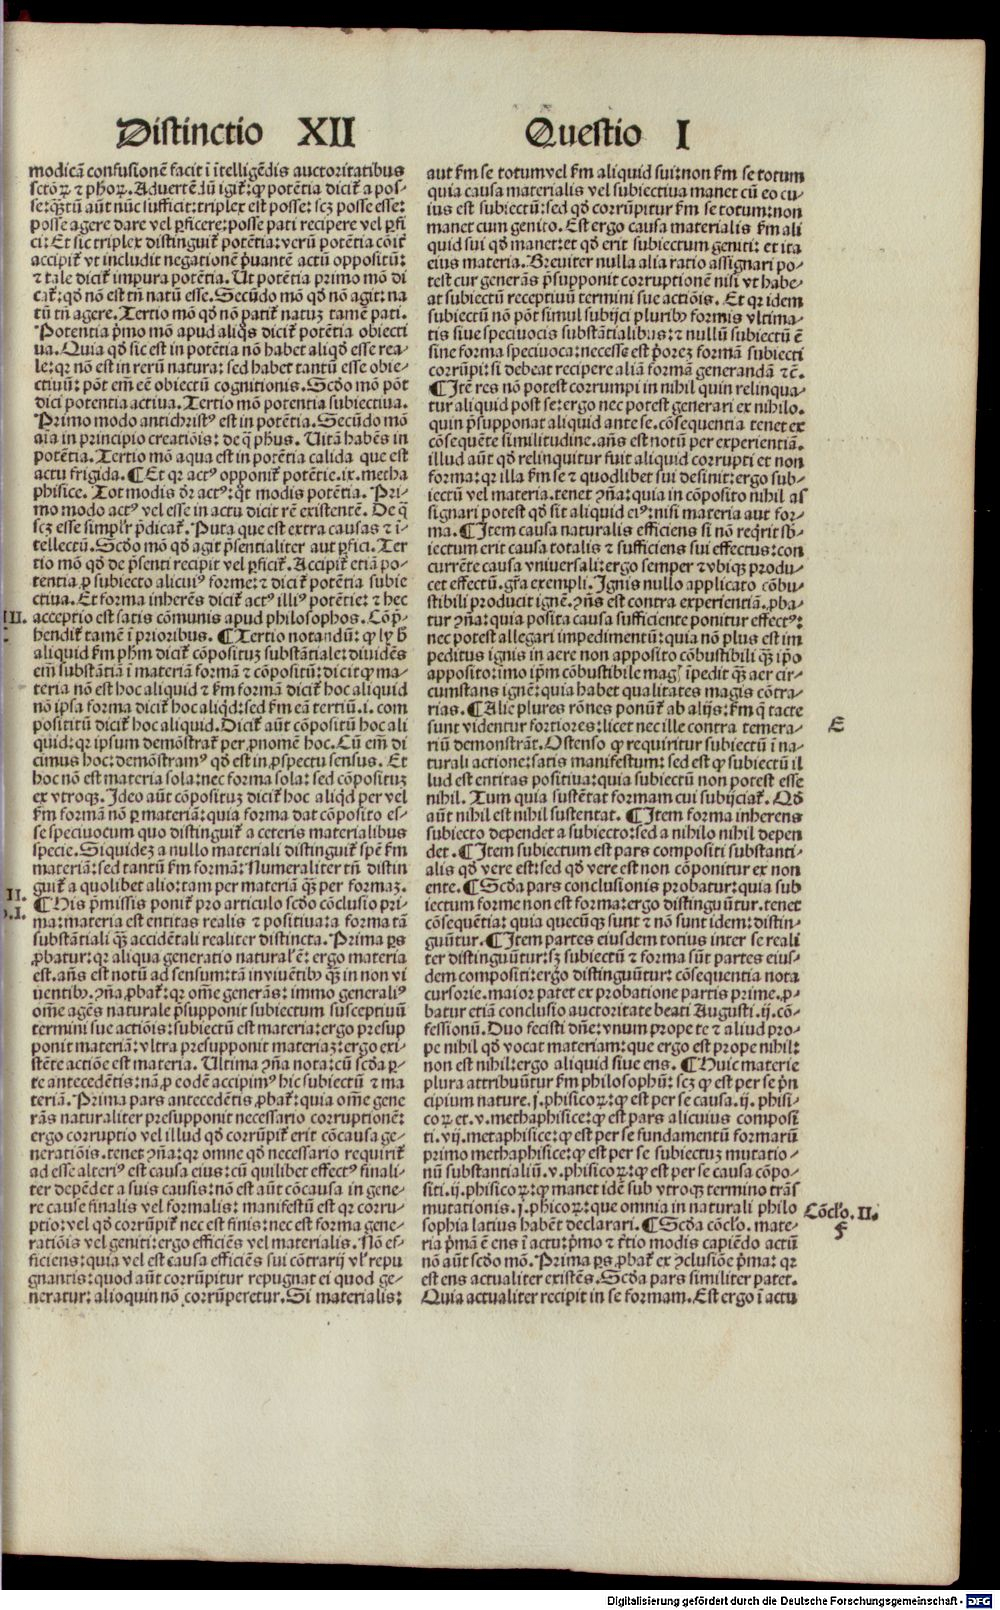 Distinctio XII
Questio I
modicā confusionē facit ī ītelligēdis auctoritatibus
sctōꝝ ⁊ ph̄oꝝ. Advertēdū igiť: ꝙ potētia diciť a pos⸗
se: q̄ꝫtū aūt nūc sufficit: triplex est posse: scꝫ posse esse:
posse agere dare vel ꝑficere: posse pati recipere vel ꝑfi
ci: Et sic triplex distinguiť potētia: verū potētia cōiť
accipiť vt includit negationē p̄uantē actū oppositū:
⁊ tale diciť impura potētia. Ut potētia primo mō di
cať: qđ nō est tn̄ natū esse. Secūdo mō qđ nō agit: na
tū tn̄ agere. Tertio mō qđ nō patiť natuꝫ tamē pati.
Potentia p̄mo mō apud aliq̄s diciť potētia obiecti
ua. Quia qđ sic est in potētia nō habet aliqđ esse rea⸗
le: qꝛ nō est in rerū natura: sed habet tantū esse obie⸗
ctiuū: pōt em̄ eē obiectū cognitionis. Scđo mō pōt
dici potentia activa. Tertio mō potentia subiectiva.
Primo modo antichristꝰ est in potētia. Secūdo mō
aīa in principio creatiōis: de q̄ ph̄us. Uitā habēs in
potētia. Tertio mō aqua est in potētia calida que est
actu frigida. ¶ Et qꝛ actꝰ opponiť potētie. ix. metha
phisice. Tot modis dr̄ actꝰ: q̄t modis potētia. Pri⸗
mo modo actꝰ vel esse in actu dicit rē existentē. De q̄
scꝫ esse simplr̄ p̄dicať. Puta que est extra causas ⁊ ī⸗
tellectū. Scđo mō qđ agit p̄sentialiter aut ꝑfici. Ter
tio mō qđ de p̄senti recipit vel ꝑficiť. Accipiť etiā po⸗
tentia ꝓ subiecto alicuiꝰ forme: ⁊ diciť potētia subie
ctiva. Et forma inherēs diciť actꝰ illiꝰ potētie: ⁊ hec
III. acceptio est satis cōmunis apud philosophos. Cōp̄⸗
hendiť tamē ī prioribus. ¶ Tertio notandū: ꝙ ly h̄
aliquid ẜm ph̄m diciť cōposituꝫ substātiale: dividēs
em̄ substātiā ī materiā formā ⁊ cōpositū: dicit ꝙ ma⸗
teria nō est hoc aliquid ⁊ ẜm formā diciť hoc aliquid
nō ip̄sa forma diciť hoc aliq̄d: sed ẜm eā tertiū. i. com
positū diciť hoc aliquid. Diciť aūt cōpositū hoc ali
quid: qꝛ ipsum demōstrať per ꝓnomē hoc. Cū em̄ di
cimus hoc: demōstramꝰ qđ est in ꝓspectu sensus. Et
hoc nō est materia sola: nec forma sola: sed cōpositum
ex vtroqꝫ. Ideo aūt cōpositum diciť hoc aliq̄d per vel
ẜm formā nō ꝑ materiā: quia forma dat cōposito es⸗
se specivocum quo distinguiť a ceteris materialibus
specie. Siquidē a nullo materiali distinguiť spē ẜm
materiā: sed tantū ẜm formā: Numeraliter tn̄ distin
guiť a quolibet alio: tam per materiā q̄ꝫ per formaꝫ.
II. ¶ His p̄missis poniť pro articulo scđo cōclusio pri⸗
ma: materia est entitas realis ⁊ positiva: a forma tā
substātiali q̄ꝫ accidētali realiter distincta. Prima ꝑs
ꝓbatur: qꝛ aliqua generatio naturaľ ē: ergo materia
est. añs est notū ad sensum: tā in viuētibꝰ q̄ꝫ in non vi
uentibꝰ. ꝯña ꝓbať: qꝛ om̄e generās: immo generaliꝰ
om̄e agēs naturale p̄supponit subiectum susceptiuū
termini sue actiōis: subiectū est materia: ergo presup
ponit materiā: vltra presupponit materiaꝫ: ergo exi⸗
stēte actiōe est materia. Ultima ꝯña nota: cū scđa ꝑ⸗
te antecedētis: nā ꝓ eodē accipimꝰ hic subiectū ⁊ ma
teriā. Prima pars antecedētis ꝓbať: quia om̄e gene
rās naturaliter presupponit necessario corruptionē:
ergo corruptio vel illud qđ corrūpiť erit cōcausa ge⸗
neratiōis. tenet ꝯña: qꝛ omne qđ necessario requiriť
ad esse alteriꝰ est causa eius: cū quilibet effectꝰ finali⸗
ter depēdet a suis causis: nō est aūt cōcausa in gene⸗
re cause finalis vel formalis: manifestū est qꝛ corru⸗
ptio: vel qđ corrūpiť nec est finis: nec est forma gene⸗
ratiōis vel geniti: ergo efficiēs vel materialis. Nō ef⸗
ficiens: quia vel est causa efficiēs sui cōtrarij vľ repu
gnantis: quod aūt corrūpitur repugnat ei quod ge⸗
neratur: alioquin nō corrūperetur. Si materialis:
aut ẜm se totum vel ẜm aliquid sui: non ẜm se totum
quia causa materialis vel subiectiua manet cū eo cu⸗
ius est subiectū: sed qđ corrūpitur ẜm se totum: non
manet cum genito. Est ergo causa materialis ẜm ali
quid sui qđ manet: et qđ erit subiectum geniti: et ita
eius materia. Breviter nulla alia ratio assignari po⸗
test cur generās p̄supponit corruptionē nisi vt habe⸗
at subiectū receptiuū termini sue actiōis. Et qꝛ idem
subiectū nō pōt simul subijci pluribꝰ formis vltima⸗
tis siue specivocis substātialibus: ⁊ nullū subiectū ē
sine forma specivoca: necesse est p̄orez formā subiecti
corrūpi: si debeat recipere aliā formā generandā ⁊cē.
¶ Itē res nō potest corrumpi in nihil quin relinqua⸗
tur aliquid post se: ergo nec potest generari ex nihilo.
quin p̄supponat aliquid ante se. cōsequentia tenet ex
cōsequēte similitudine. añs est notū per experientiā.
illud aūt qđ relinquitur fuit aliquid corrupti et non
forma: qꝛ illa ẜm se ⁊ quodlibet sui desinit: ergo sub⸗
iectū vel materia. tenet ꝯña: quia in cōposito nihil as
signari potest qđ sit aliquid eiꝰ: nisi materia aut for⸗
ma. ¶ Item causa naturalis efficiens si nō reqř rit sb̄⸗
iectum erit causa totalis ⁊ sufficiens sui effectus: con
currēte causa vniversali: ergo semper ⁊ vbiqꝫ produ⸗
cet effectū. gr̄a exempli. Ignis nullo applicato cōbu⸗
stibili producit ignē. ꝯñs est contra experientiā. ꝓba⸗
tur ꝯña: quia posita causa sufficiente ponitur effectꝰ:
nec potest allegari impedimentū: quia nō plus est im
peditus ignis in aere non apposito cōbustibili q̄ꝫ ip̄o
apposito: imo ip̄m cōbustibile magꝭ īpedit q̄ꝫ aer cir⸗
cumstans ignē: quia habet qualitates magis cōtra⸗
rias. ¶ Alie plures rōnes ponūť ab alijs: ẜm q̄ tacte
sunt videntur fortiores: licet nec ille contra temera⸗
E
riū demonstrāt. Ostenso ꝙ requiritur subiectū ī na⸗
turali actione: satis manifestum: sed est ꝙ subiectū il
lud est entitas positiua: quia subiectū non potest esse
nihil. Tum quia sustētat formam cui subijciať. Qđ
aūt nihil est nihil sustentat. ¶ Item forma inherens
subiecto dependet a subiecto: sed a nihilo nihil depen
det. ¶ Item subiectum est pars compositi substanti⸗
alis qđ vere est: sed qđ vere est non cōponitur ex non
ente. ¶ Scđa pars conclusionis probatur: quia sub
iectum forme non est forma: ergo distinguūtur. tenet
cōsequētia: quia quecūqꝫ sunt ⁊ nō sunt idem: distin⸗
guūtur. ¶ Item partes eiusdem totius inter se reali
ter distinguūtur: sꝫ subiectū ⁊ forma sūt partes eius⸗
dem compositi: ergo distinguūtur: cōsequentia nota
cursorie. maior patet ex probatione partis prime. ꝓ⸗
batur etiā conclusio auctoritate beati Augusti. ij. cō⸗
fessionū. Duo fecisti dñe: vnum prope te ⁊ aliud pro⸗
pe nihil qđ vocat materiam: que ergo est prope nihil:
non est nihil: ergo aliquid siue ens. ¶ Huic materie
plura attribuūtur ẜm philosophū: scꝫ ꝙ est per se p̄n
cipium nature. j. phisicoꝝ: ꝙ est per se causa. ij. phisi⸗
coꝝ et. v. methaphisice: ꝙ est pars alicuius composi
ti. vij. metaphisice: ꝙ est per se fundamentū formarū
primo methaphisice: ꝙ est per se subiectuꝫ mutatio⸗
nū substantialiū. v. phisicoꝝ: ꝙ est per se causa cōpo⸗
siti. ij. phisicoꝝ: ꝙ manet idē sub vtroqꝫ termino trās
mutationis. j. ph̄icoꝝ: que omnia in naturali philo
Cōcľo. II.
sophia latius habēt declarari. ¶ Scđa cōcľo. mate⸗
F
ria p̄mā ē ens ī actu: p̄mo ⁊ tr̄tio modis capiēdo actū
nō aūt scđo mō. Prima ꝑs ꝓbať ex ꝯclusiōe p̄ma: qꝛ
est ens actualiter existēs. Scđa pars similiter patet.
Quia actualiter recipit in se formam. Est ergo ī actu
Digitalisierung gefördert durch die Deutsche Forschungsgemeinschaft - DFG